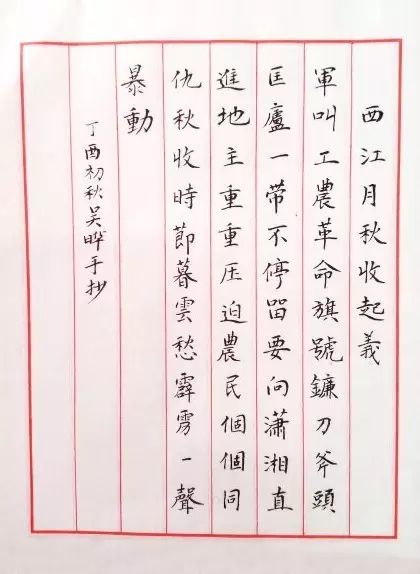 西江月秋收起義
軍叫工農革命旗號鐮刀斧頭
匡廬一帶不停畱要向瀟湘直
進地主重重压迫農民個個同
仇秋收時節暮雲愁霹雳一聲
暴動
丁酉初秋吴晔手抄